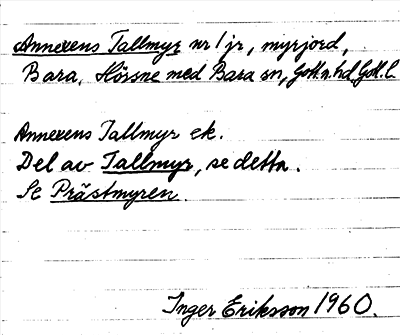 Annexens Tallmyr nr 1 jr, myrjord,
Bara, Hörsne med Bara sn, Gotl. n. hd, Gotl. l.
Annexens Tallmyr ek.
Del av Tallmyr, se detta.
Se Prästmyren.
Inger Eriksson 1960.